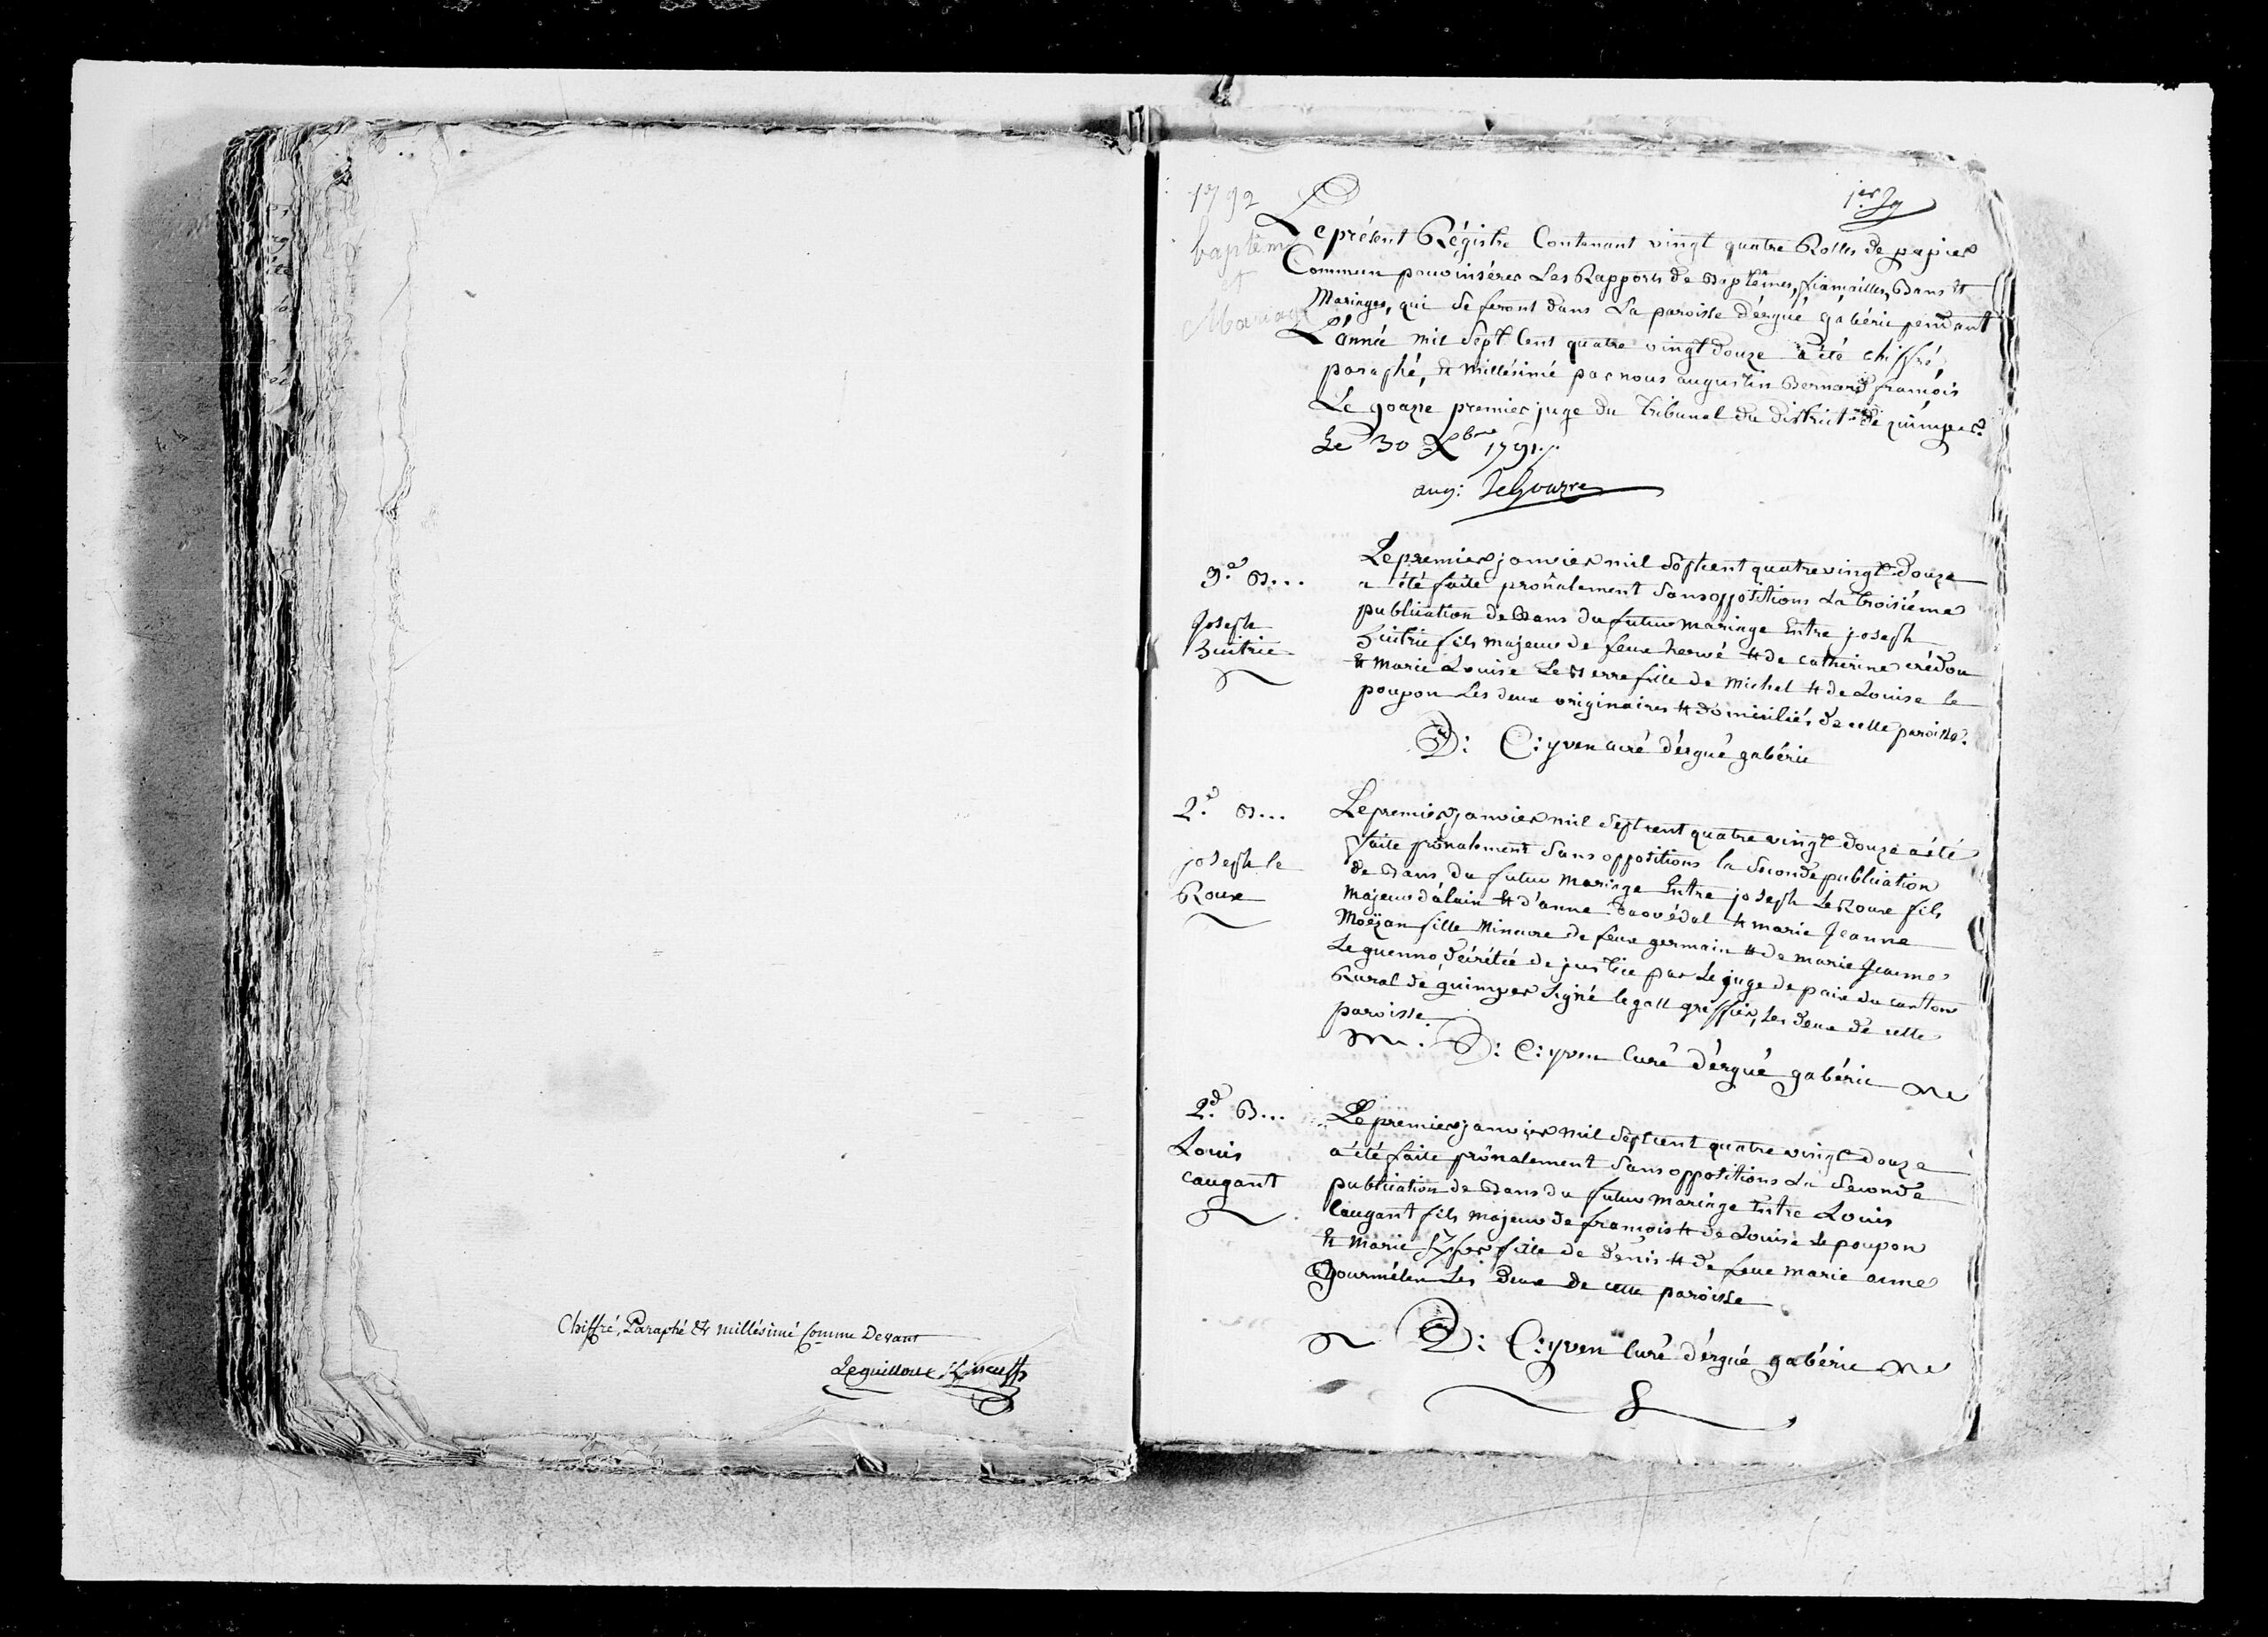 Chiffré, Paraphé & millésimé Comme Devant
Leguilloux
1792
baptême
et
Mariage
1er
Le présent Régistre Contenant vingt quatre Rolles de papier
Commun pour insérer Les Rapports de Baptêmes, fiancailles, Bans et
Mariages, qui se feront dans La paroisse d'érgué gabéric pendant
L'année mil sept Cent quatre vingt douze a été chiffré,
paraphé, & millésimé par nous augustin Bernard francois
Le goazre premier juge du tribunal du district de quimper.
Le 30 Xbre 1791./.
aug: Legoazre
3.e B...
Joseph
Zuitric
Le premier janvier mil Septcent quatrevingt douze
a été faite prônalement Sans oppositions La troisiéme
publication de Bans du futur mariage Entre joseph
Zuitric fils majeur de feux hervé & de catherine crédou
& marie Louise Le Berre fille de Michel & de Louise le
poupon Les deux originaires & domiciliés de cette paroisse.
D: C: yven curé d'érgué gabéric
2.d B...
joseph le
Roux
Le premier janvier mil Septcent quatre vingt douze a été
faite prônalement Sans oppositions la Seconde publication
de Bans du futur mariage Entre joseph Le Roux fils
majeur d'alain & d'anne & marie Jeanne
Moëzan fille Mineure de feux germain & de marie Jeanne
Le guenno, décrétée de justice par Le juge de paix du canton
Rural de quimper Signé le gall greffier, Les deux de cette
paroisse.
D: C: yven Curé d'érgué gabéric
2.d B...
Louis
caugant
Le premier janvier mil Septcent quatre vingt douze
a été faite prônalement Sans oppositions La Seconde
publication de Bans du futur mariage Entre Louis
Caugant fils majeur de francois & de Louise Le poupon
& marie fille de denis & de feue marie anne
Gourmélen Les Deux de cette paroisse
D: C: yven Curé d'érgué gabéric